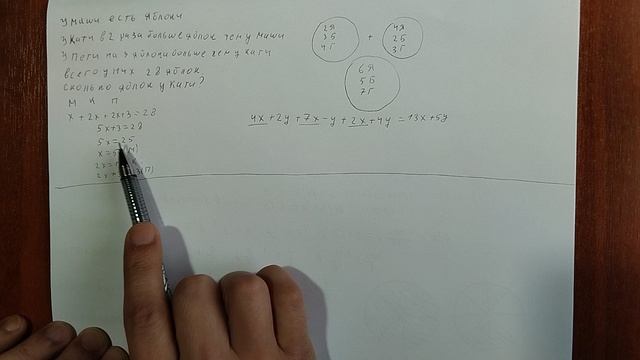 У Маши есть яблоки
У Кати в 2 раза больше яблок чем у Маши
У Пети на 3 яблока больше чем у Кати
всего у них 28 яблок
сколько яблок у Кати?
М К П
x + 2x + 2x+3 = 28
5x+3 = 28
5x = 25
x = 5
2x =
2x +
2Я
3Б
4Г
+
4Я
2Б
3Г
6Я
5Б
7Г
4x + 2y + 7x - y + 2x + 4y = 13x + 5y